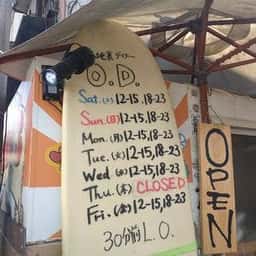 O.D.
Sat.(土) 12-15, 18-23
Sun.(日) 12-15, 18-23
Mon.(月) 12-15, 18-23
Tue.(火) 12-15, 18-23
Wed.(水) 12-15, 18-23
Thu.(木) CLOSED
Fri.(金) 12-15, 18-23
30分前 L.O.
OPEN